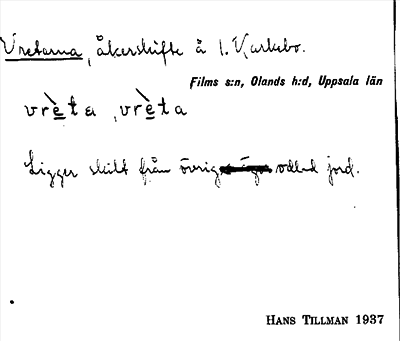 Vretarna, åkerskifte å 1. Karlebo.
Films s:n, Olands h:d, Uppsala län
vrèta, vrèta
Ligger skilt från övrig odlad jord.
HANS TILLMAN 1937